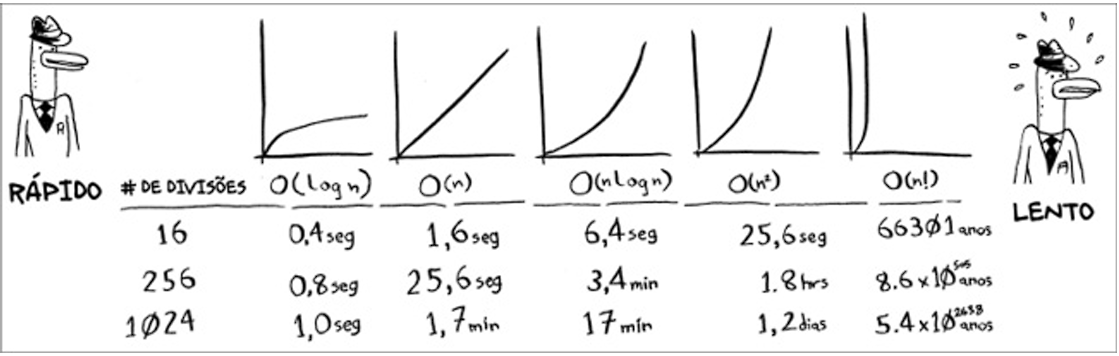 RÁPIDO
# DE DIVISÕES O(log n) O(n) O(n log n) O(n²) O(n!)
LENTO
16 0,4 seg 1,6 seg 6,4 seg 25,6 seg 66301 anos
256 0,8 seg 25,6 seg 3,4 min 1.8 hrs 8.6 x 10⁵⁰⁵ anos
1024 1,0 seg 1,7 min 17 min 1,2 dias 5.4 x 10²⁶³⁸ anos